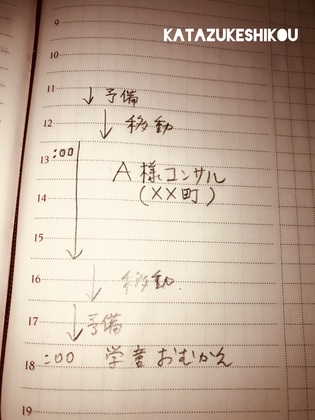 KATAZUKESHIKOU
9
10
11
↓ 予備
12 ↓ 移動
13 :00
A様コンサル
14 (XX町)
15
16 ↓ 移動
17 ↓ 予備
18 :00 学童おむかえ
19